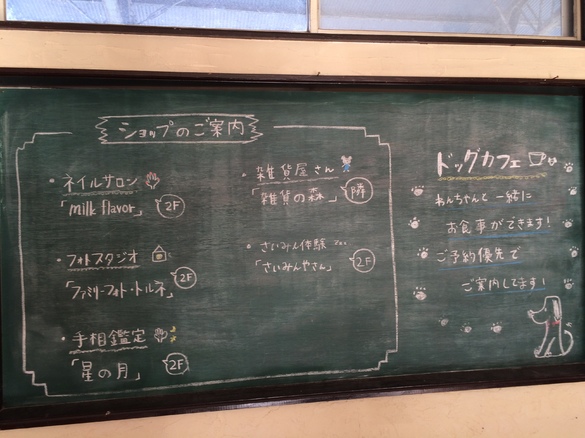 ショップのご案内
・ネイルサロン
「milk flavor」 2F
・フォトスタジオ
「ファミリーフォト・トルネ」 2F
・手相鑑定
「星の月」 2F
・雑貨屋さん
「雑貨の森」 隣
・さいみん体験
「さいみんやさん」 2F
ドッグカフェ
わんちゃんと一緒に
お食事ができます!
ご予約優先で
ご案内してます!